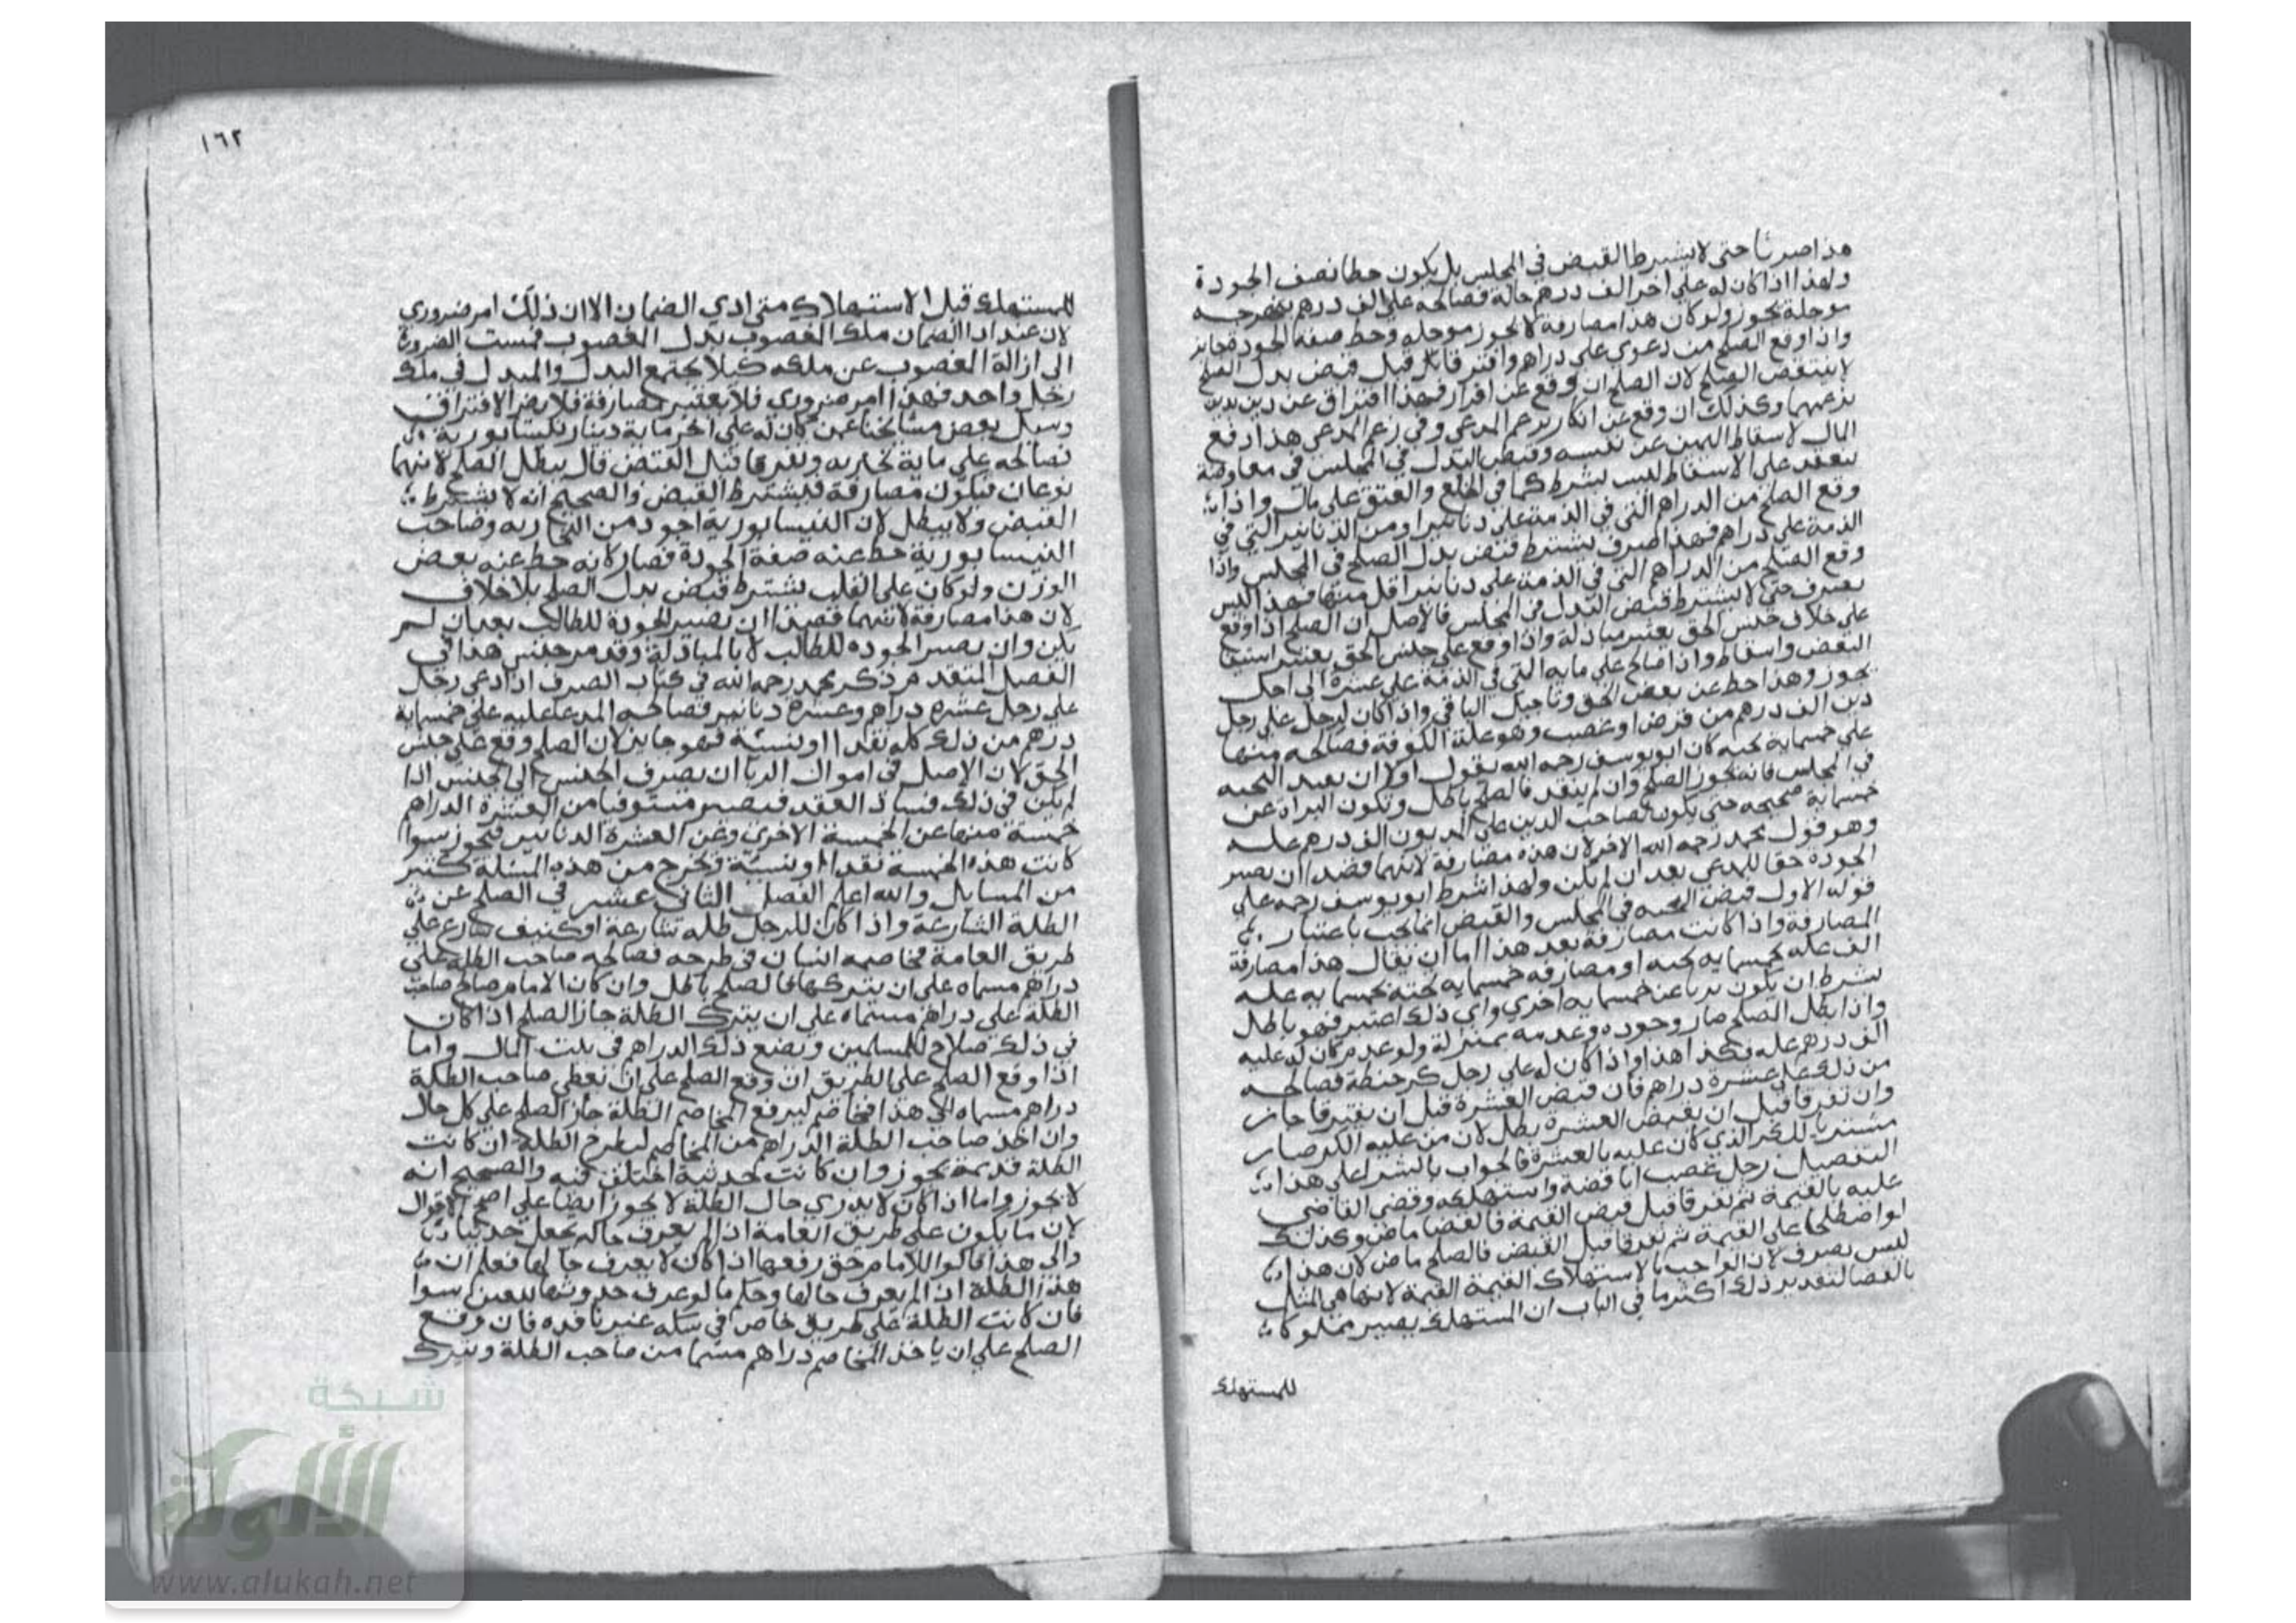 هذا صرفا حتى لا يشترط القبض في المجلس بل يكون حطا نصف الجودة
ولهذا اذا كان له على اخر الف درهم حالة فصالحه على الف درهم بنهرجه
موجلة يجوز ولو كان هذا مصارفة لا يجوز موجله وحط صفة الجوده جايز
واذا وقع الصلح من دعوى على دراهم وافترقا قبل قبض بدل الصلح
لا ينتقض الصلح لان الصلح ان وقع عن اقرار فهذا افتراق عن دين بدين
بزعمهما وكذلك ان وقع عن انكار بزعم المدعي وفي زعم المدعي هذا دفع
المال لاسقاط اليمين عن نفسه وقبض البدل في المجلس في معاوضة
تنعقد على الاسقاط ليس بشرط كما في الخلع والعتق على مال واذا
وقع الصلح من الدراهم التي في الذمة على دنانير او من الدنانير التي في
الذمة على دراهم فهذا صرف يشترط قبض بدل الصلح في المجلس واذا
وقع الصلح من الدراهم التي في الذمة على دنانير اقل منها فهذا ليس
بصرف حتى لا يشترط قبض البدل في المجلس فالاصل ان الصلح اذا وقع
على خلاف جنس الحق يعتبر مبادلة واذا وقع على جنس الحق يعتبر استيفا
البعض واسقاط واذا صالح على مايه التي في الذمة على عشرة الى اجل
يجوز وهذا حط عن بعض الحق وتاجيل الباقي واذا كان لرجل على رجل
دين الف درهم من قرض او غصب وهو غلة الكوفة فصالحه منها
على خمسماية بخيه كان ابو يوسف رحمه الله يقول اولا ان بعد البخيه
في المجلس فانه يجوز الصلح وان لم ينقد فالصلح باطل وتكون البراة عن
خمسماية صحيحه حتى يكون لصاحب الدين على المديون الف درهم غله
وهو قول محمد رحمه الله الاخر لان هذه مصارفة لانهما قصدا ان يصير
الجودة حقا للمدعي بعد ان لم يكن ولهذا شرط ابو يوسف رحمه على
قوله الاول قبض البخيه في المجلس والقبض انما يجب باعتبار
المصارفة واذا كانت مصارفة بعد هذا اما ان يقال هذا مصارفة
الف غله بخمسمايه بخيه او مصارفه خمسمايه بخيه بخمسمايه غله
بشرط ان يكون بريا عن خمسمايه اخري واي ذلك اعتبر فهو باطل
واذا بطل الصلح صار وجوده وعدمه بمنزلة ولو عدم كان له عليه
الف درهم غله فكذا هذا واذا كان له على رجل كر حنطة فصالحه
من ذلك على عشرة دراهم فان قبض العشرة قبل ان يفترقا جاز
وان تفرقا قبل ان يقبض العشرة بطل لان من عليه الكر صار
مشتريا للكر الذي كان عليه بالعشرة فالجواب بالشراء على هذا
التفصيل رجل غصب انا فضة واستهلكه وقضى القاضي
عليه بالقيمة ثم تفرقا قبل قبض القيمة فالقضا ماض وكذلك
لو اصطلحا على القيمة ثم تفرقا قبل القبض فالصلح ماض لان هذا
ليس بصرف لان الواجب بالاستهلاك القيمة القيمة لانها هي المثل
بالقضا لتقدير ذلك اكثر ما في الباب ان المستهلك يصير مملوكا
للمستهلك
١٦٢
للمستهلك قبل الاستهلاك متى ادي الضمان الا ان ذلك امر ضروري
لان عند ادا الضمان ملك المغصوب بدل المغصوب فمست الضرورة
الى ازالة المغصوب عن ملكه كيلا يجتمع البدل والمبدل في ملك
رجل واحد فهذا امر ضروري فلا يعتبر مصارفة فلا يضر الافتراق
وسيل بعض مشايخنا عمن كان له على اخر ماية دينار نيسابورية
فصالحه على ماية بخاريه وتفرقا قبل القبض قال يبطل الصلح لانهما
نوعان فيكون مصارفة فيشترط القبض والصحيح انه لا يشترط
القبض ولا يبطل لان النيسابورية اجود من البخاريه وصاحب
النيسابورية حط عنه صفة الجودة فصار كانه حط عنه بعض
الوزن ولو كان على القلب يشترط قبض بدل الصلح بلا خلاف
لان هذا مصارفة لانهما قصدا ان تصير الجودة للطالب بعد ان لم
يكن وان يصير الجوده للطالب الا بالمبادلة وقد مر جنس هذا في
الفصل المتقدم ذكر محمد رحمه الله في كتاب الصرف اذا دعي رجل
على رجل عشره دراهم وعشرة دنانير فصالحه المدعا عليه على خمسماية
درهم من ذلك كله نقدا او نسيئة فهو جايز لان الصلح وقع على جنس
الحق لان الاصل في اموال الربا ان يصرف الجنس الى الجنس اذا
لم يكن في ذلك فساد العقد فيصير مستوفيا من العشرة الدراهم
خمسة منها عن الخمسة الاخرى وعن العشرة الدنانير فيجوز سوا
كانت هذه الخمسة نقدا او نسيئة وتخرج من هذه المسئلة كثير
من المسايل والله اعلم الفصل الثاني عشر في الصلح عن
الظلة الشارعة واذا كان للرجل ظله شارعة او كنيف شارع على
طريق العامة فخاصمه انسان في طرحه فصالحه صاحب الظله على
دراهم مسماه على ان يتركها فالصلح باطل وان كان الامام صالح صاحب
الظلة على دراهم مسماه على ان يترك الظلة جاز الصلح اذا كان
في ذلك صلاح للمسلمين ويضع ذلك الدراهم في بيت المال واما
اذا وقع الصلح على الطريق ان وقع الصلح على ان يعطي صاحب الظلة
دراهم مسماه الى هذا المخاصم ليرفع المخاصم الظلة جاز الصلح على كل حال
وان اخذ صاحب الظلة الدراهم من المخاصم ليطرح الظلة ان كانت
الظلة قديمة يجوز وان كانت حديثة اختلف فيه والصحيح انه
لا يجوز واما اذا كان لا يدري حال الظلة لا يجوز ايضا على اصح الاقوال
لان ما يكون على طريق العامة اذا لم يعرف حاله يجعل حديثا
والى هذا قالوا للامام حق رفعها اذا كان لا يعرف حالها فعلم ان
هذا الظلة ان لم يعرف حالها وحكم ما لو عرف حدوثها سوا
فان كانت الظلة على طريق خاص في سكه غير نافذه فان وقع
الصلح على ان ياخذ المخاصم دراهم مسما من صاحب الظلة ويترك
شبكة
الألوكة
www.alukah.net